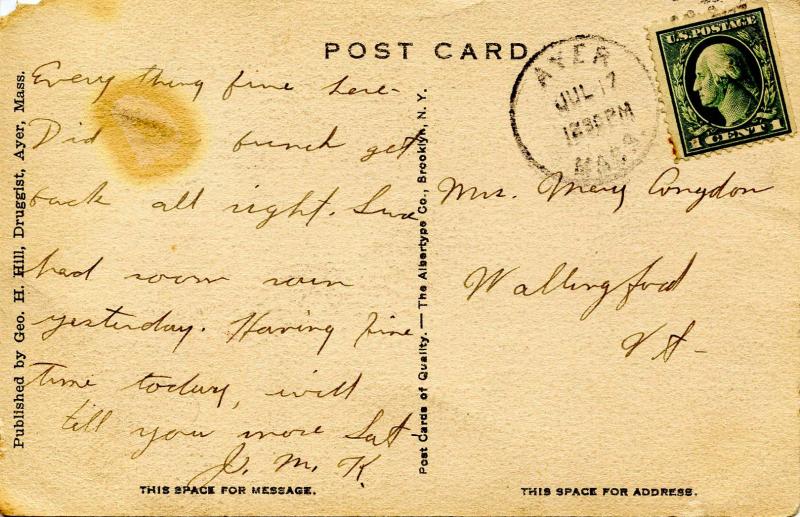 POST CARD
U.S. POSTAGE
1 CENT 1
AYER
JUL 17
12 30 PM
MASS
Every thing fine here-
Did bunch get
back all right. Sure
had some rain
yesterday. Having fine
time today, will
tell you more Sat
J. M. K
Mrs. Mary Congdon
Wallingford
Vt-
Published by Geo. H. Hill, Druggist, Ayer, Mass.
Post Cards of Quality. — The Albertype Co., Brooklyn, N. Y.
THIS SPACE FOR MESSAGE.
THIS SPACE FOR ADDRESS.